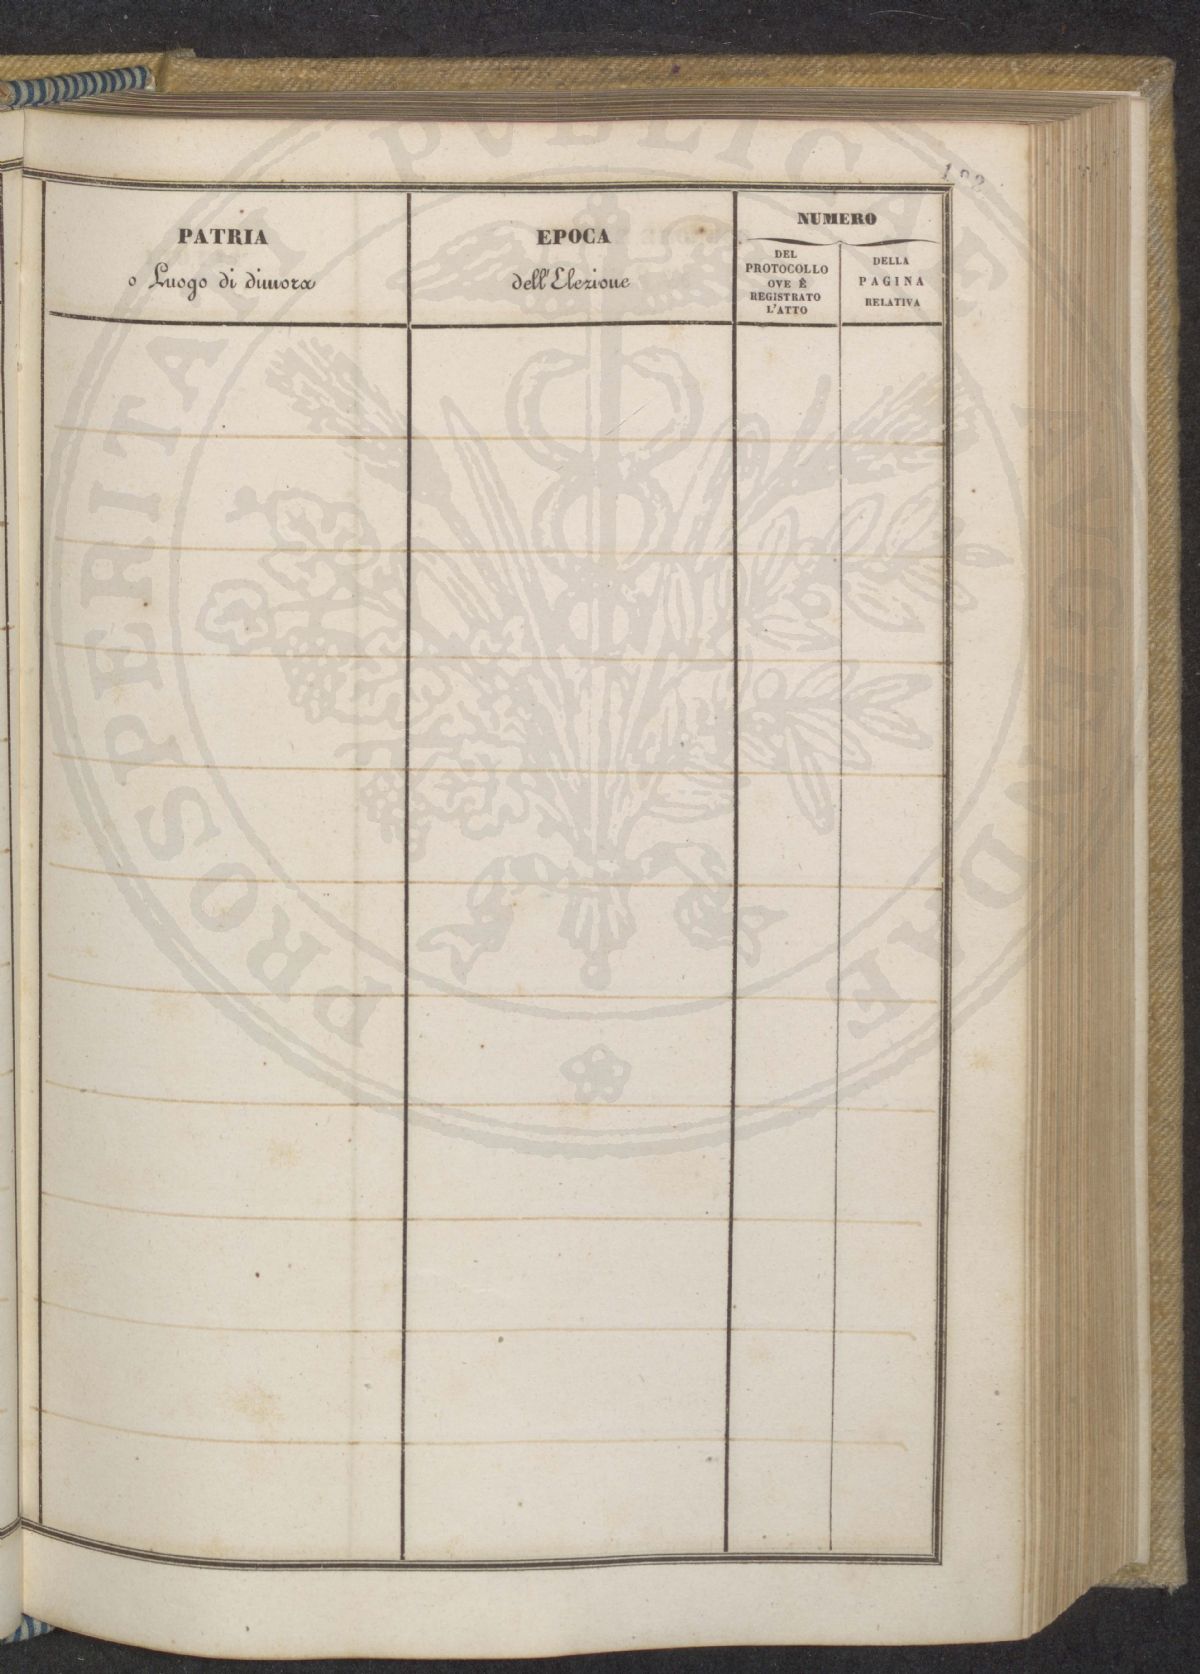 182
PATRIA
o Luogo di dimora
EPOCA
dell'Elezione
NUMERO
DEL
PROTOCOLLO
OVE È
REGISTRATO
L'ATTO
DELLA
PAGINA
RELATIVA
PROSPERITATI PVBLICAE AVGENDAE